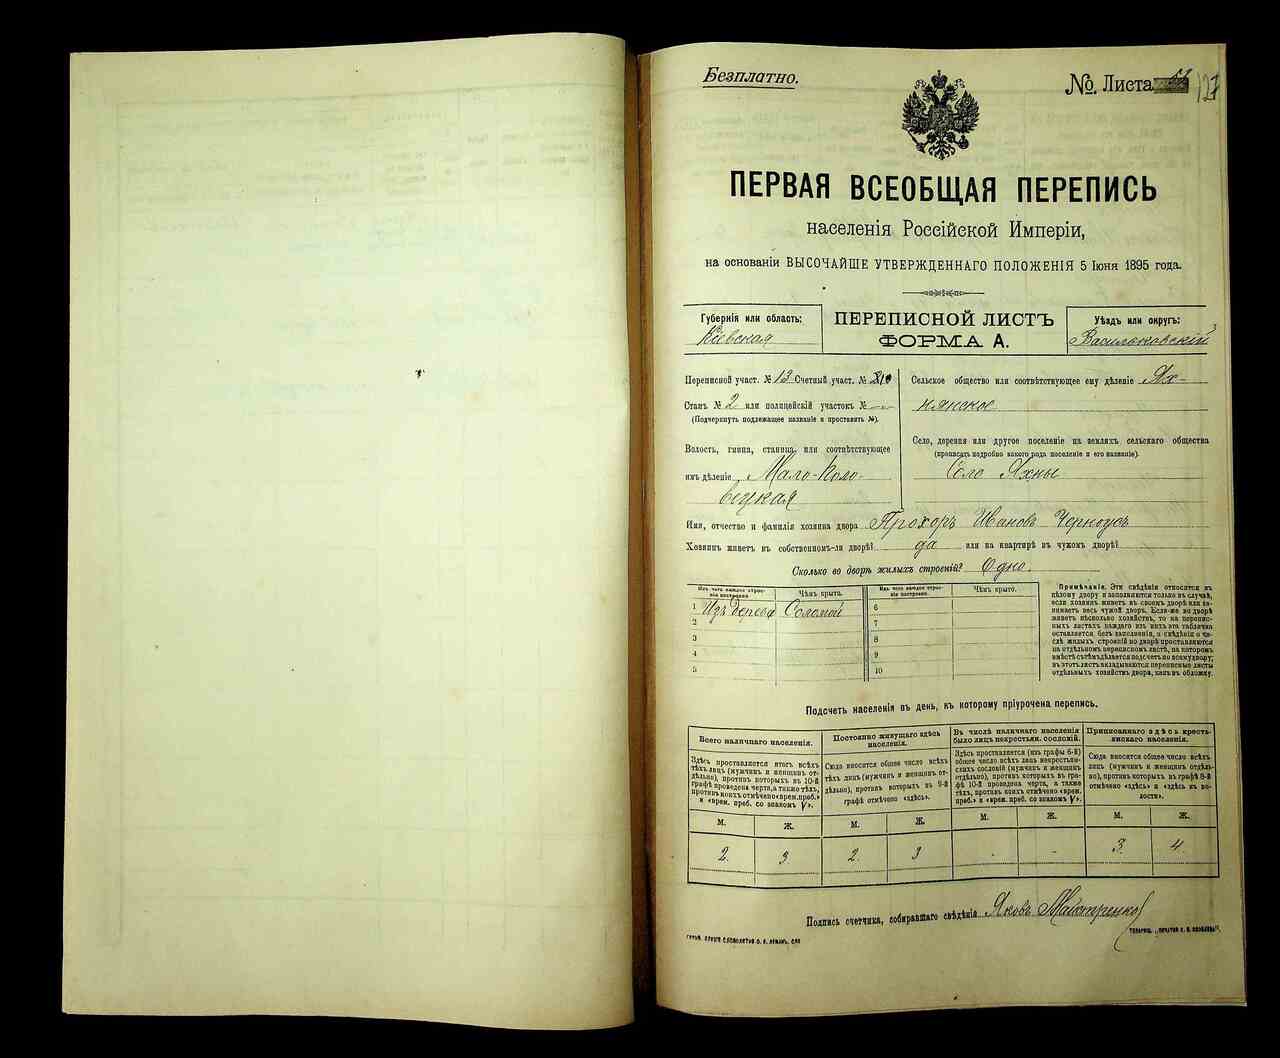 Безплатно.
№. Листа
127
ПЕРВАЯ ВСЕОБЩАЯ ПЕРЕПИСЬ
населенія Россійской Имперіи,
на основаніи ВЫСОЧАЙШЕ УТВЕРЖДЕННАГО ПОЛОЖЕНІЯ 5 Іюня 1895 года.
Губернія или область:
Кіевская
ПЕРЕПИСНОЙ ЛИСТЪ
ФОРМА А.
Уѣздъ или округъ:
Васильковскій
Переписной участ. № 13 Счетный участ. №
Станъ № 2 или полицейскій участокъ № —
(Подчеркнуть подлежащее названіе и проставить №).
Волость, гмина, станица, или соотвѣтствующее
имъ дѣленіе Мало-Поло-
вецкая
Сельское общество или соотвѣтствующее ему дѣленіе Ях-
нянское
Село, деревня или другое поселеніе на земляхъ сельскаго общества
(прописать подробно какого рода поселеніе и его названіе).
Село Яхны
Имя, отчество и фамилія хозяина двора Прохоръ Ивановъ Черноусъ
Хозяинъ живетъ въ собственномъ-ли дворѣ? да или на квартирѣ въ чужомъ дворѣ?
Сколько во дворѣ жилыхъ строеній? Одно.
Изъ чего каждое строе-
ніе построено.
Чѣмъ крыто.
1 Изъ дерева Соломой
2
3
4
5
Изъ чего каждое строе-
ніе построено.
Чѣмъ крыто.
6
7
8
9
10
Примѣчаніе. Эти свѣдѣнія относятся къ
цѣлому двору и заполняются только въ случаѣ,
если хозяинъ живетъ въ своемъ дворѣ или за-
нимаетъ весь чужой дворъ. Если-же во дворѣ
живетъ нѣсколько хозяйствъ, то на перепис-
ныхъ листахъ каждаго изъ нихъ эта табличка
оставляется безъ заполненія, а свѣдѣнія о чи-
слѣ жилыхъ строеній во дворѣ проставляются
на отдѣльномъ переписномъ листѣ, на которомъ
вмѣстѣ съ тѣмъ дѣлается подсчетъ по всему двору;
въ этотъ листъ вкладываются переписные листы
отдѣльныхъ хозяйствъ двора, какъ въ обложку.
Подсчетъ населенія въ день, къ которому пріурочена перепись.
Всего наличнаго населенія.
Здѣсь проставляется итогъ всѣхъ
тѣхъ лицъ (мужчинъ и женщинъ от-
дѣльно), противъ которыхъ въ 10-й
графѣ проведена черта, а также тѣхъ,
противъ коихъ отмѣчено «врем. преб.»
и «врем. преб. со знакомъ V».
Постоянно живущаго здѣсь
населенія.
Сюда вносится общее число всѣхъ
тѣхъ лицъ (мужчинъ и женщинъ от-
дѣльно), противъ которыхъ въ 9-й
графѣ отмѣчено «здѣсь».
Въ числѣ наличнаго населенія
было лицъ некрестьян. сословій.
Здѣсь проставляется (изъ графы 6-й)
общее число всѣхъ лицъ некрестьян-
скихъ сословій (мужчинъ и женщинъ
отдѣльно), противъ которыхъ въ гра-
фѣ 10-й проведена черта, а также
тѣхъ, противъ коихъ отмѣчено «врем.
преб.» и «врем. преб. со знакомъ V».
Приписаннаго здѣсь кресть-
янскаго населенія.
Сюда вносится общее число всѣхъ
лицъ (мужчинъ и женщинъ отдѣль-
но), противъ которыхъ въ графѣ 8-й
отмѣчено «здѣсь» и «здѣсь въ во-
лости».
М. Ж. М. Ж. М. Ж. М. Ж.
2. 3 2. 3 - - 3. 4
Подпись счетчика, собиравшаго свѣдѣнія Яковъ